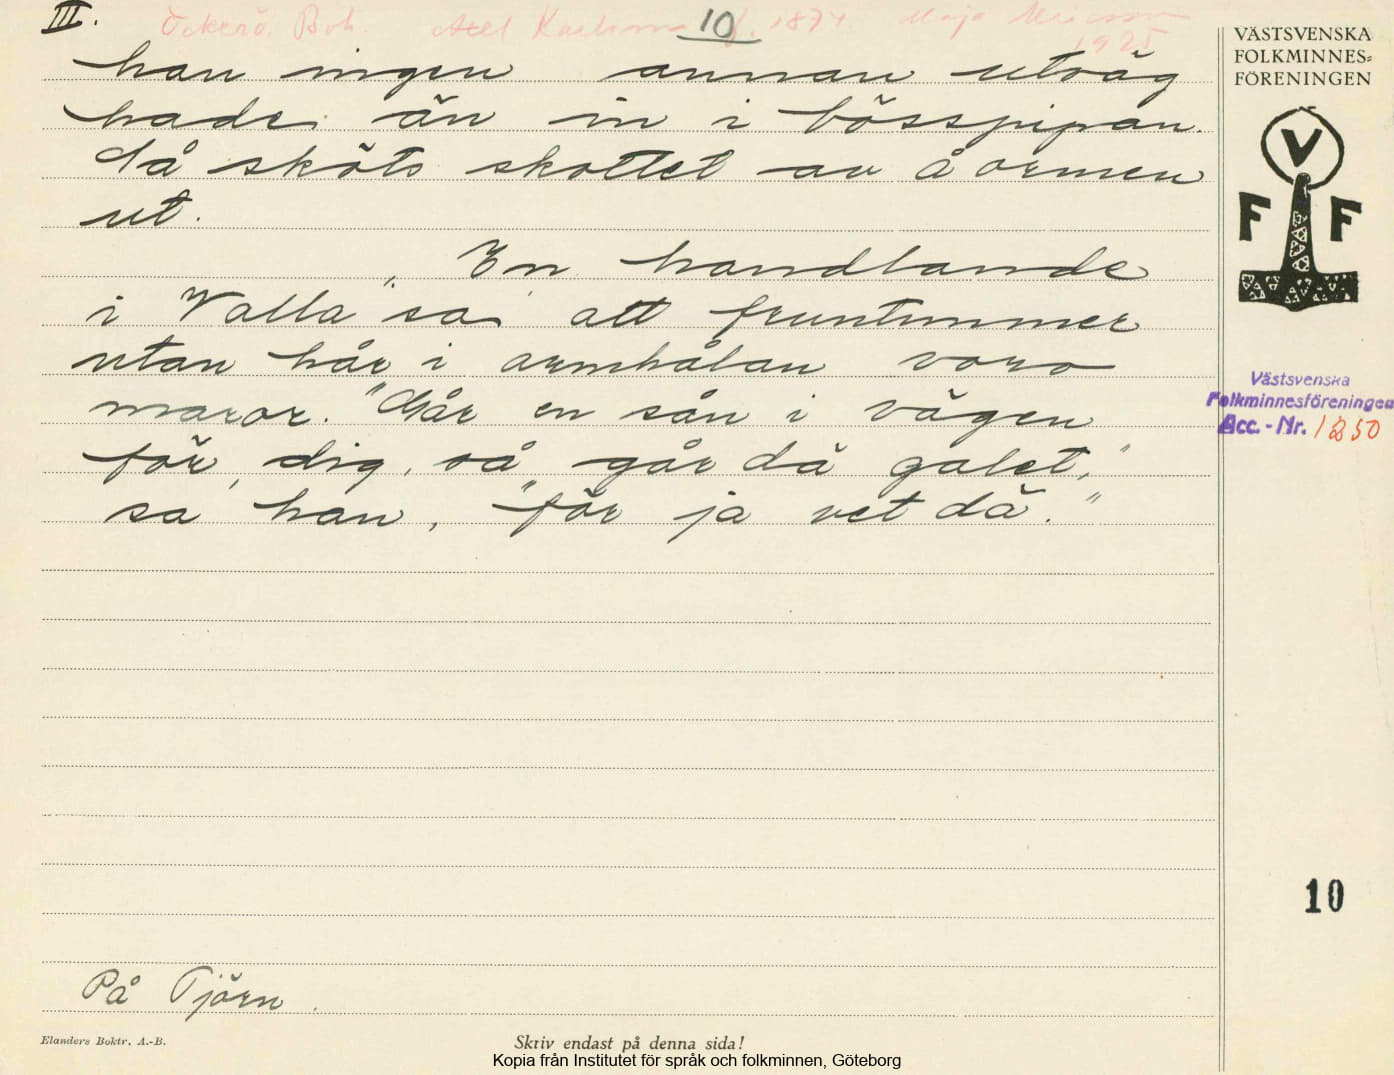 III. 10
Öckerö. Boh. Axel Karlsson f. 1874. Maja Ericsson
1925
han ingen annan utväg
hade än in i bösspipan.
Då sköts skottet av å ormen
ut.
En handlande
i "Valla" sa att fruntimmer
utan hår i armhålan voro
maror. "Går en sån i vägen
för dig, så går då galet,"
sa han, "för ja vet då."
På Tjörn.
VÄSTSVENSKA
FOLKMINNES=
FÖRENINGEN
V
F F
Västsvenska
Folkminnesföreningen
Acc.-Nr. 1250
10
Elanders Boktr. A.-B.
Skriv endast på denna sida!
Kopia från Institutet för språk och folkminnen, Göteborg